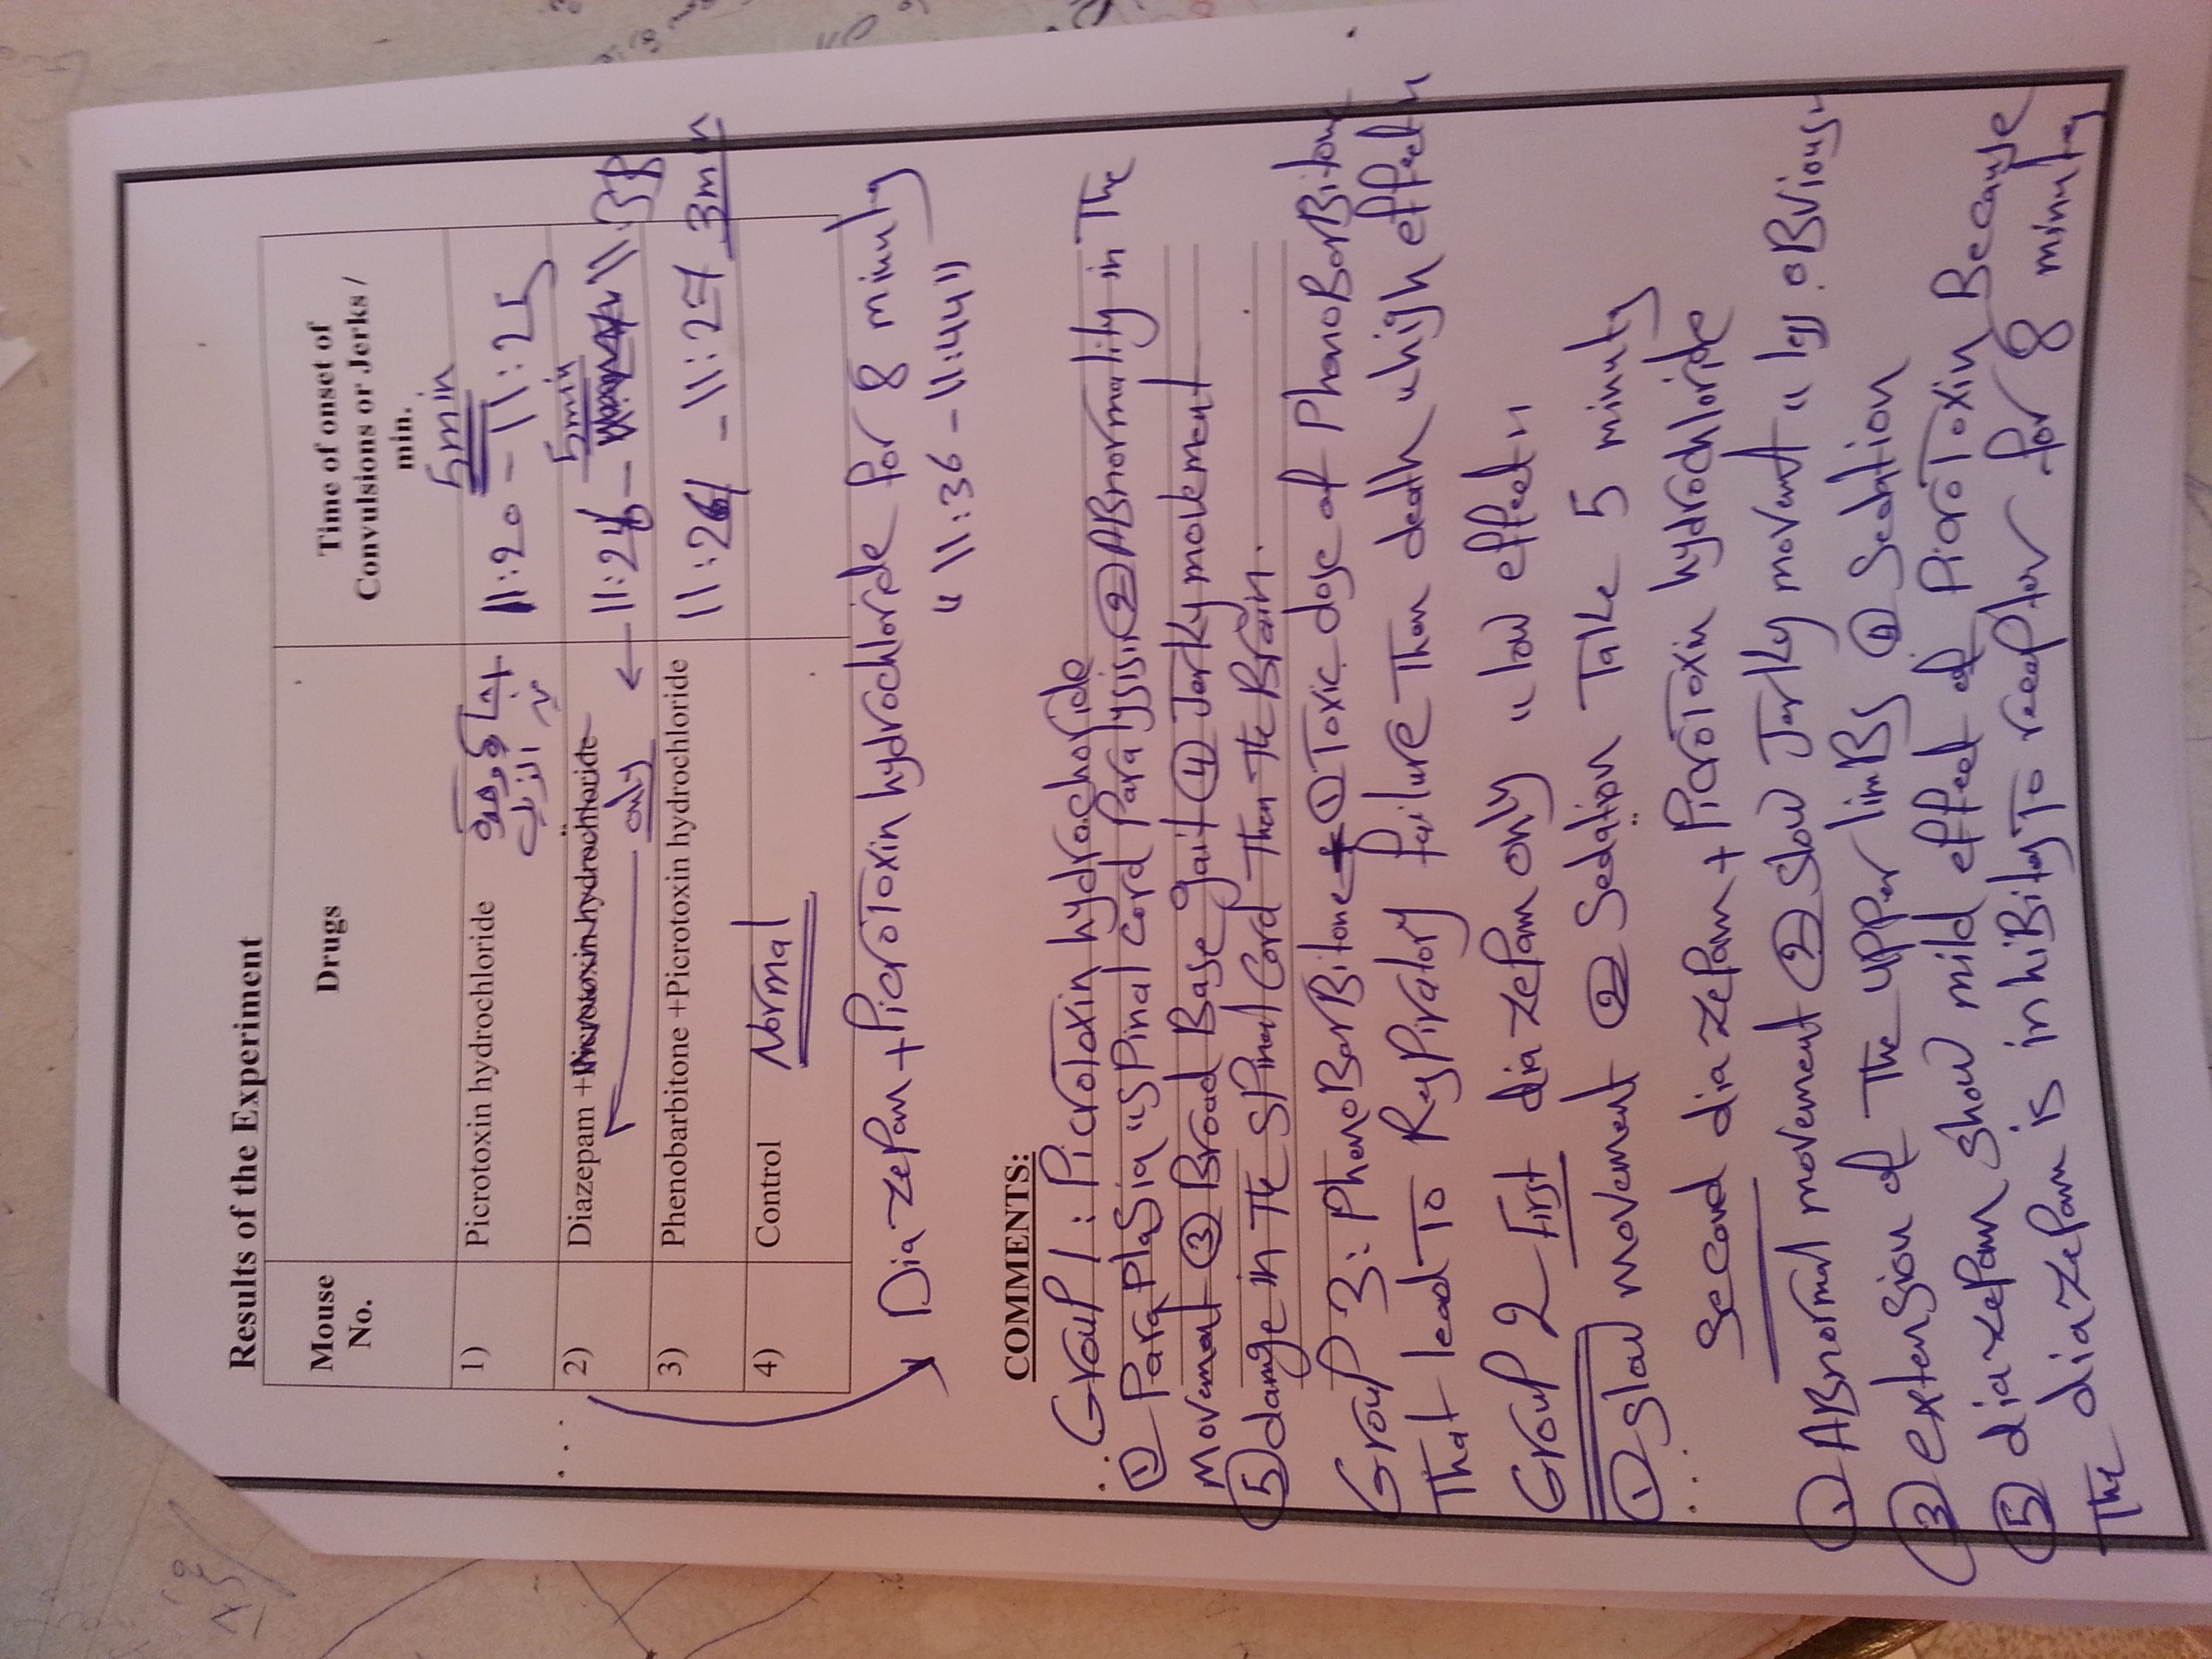 Results of the Experiment
Mouse No.
Drugs
Time of onset of Convulsions or Jerks / min.
1)
Picrotoxin hydrochloride
5min
11:20 - 11:25
2)
Diazepam +Picrotoxin hydrochloride
only
5min
11:26 - 11:3
3)
Phenobarbitone +Picrotoxin hydrochloride
11:26 - 11:27 3min
4)
Control
Normal
DiazePam + PicroToxin hydrochloride for 8 minuts
"11:36 - 11:44"
COMMENTS:
GrouP 1: PicroToxin hydrochoride
① ParaPlaSia "SPinal cord Paralysis" ② ABnormality in The
movement ③ Broad Base gait ④ Jerky movement
⑤ damge in The SPinal Cord Then The Brain.
GrouP 3: PhenoBarBitone ① Toxic dose of PhenoBarBitone
That lead To ResPiratory failure Then death "high effect"
GrouP 2 First diazePam only "low effect"
① Slow movement ② Sedation Take 5 minuts
Second diazePam + PicroToxin hydrochloride
① ABnormal movement ② Slow Jerky movent "less oBvious"
③ extension of The uPPer limBs ④ Sedation
⑤ diazePam show mild effect of PicroToxin Because
The diazePam is inhiBitory To recePtor for 8 minuts